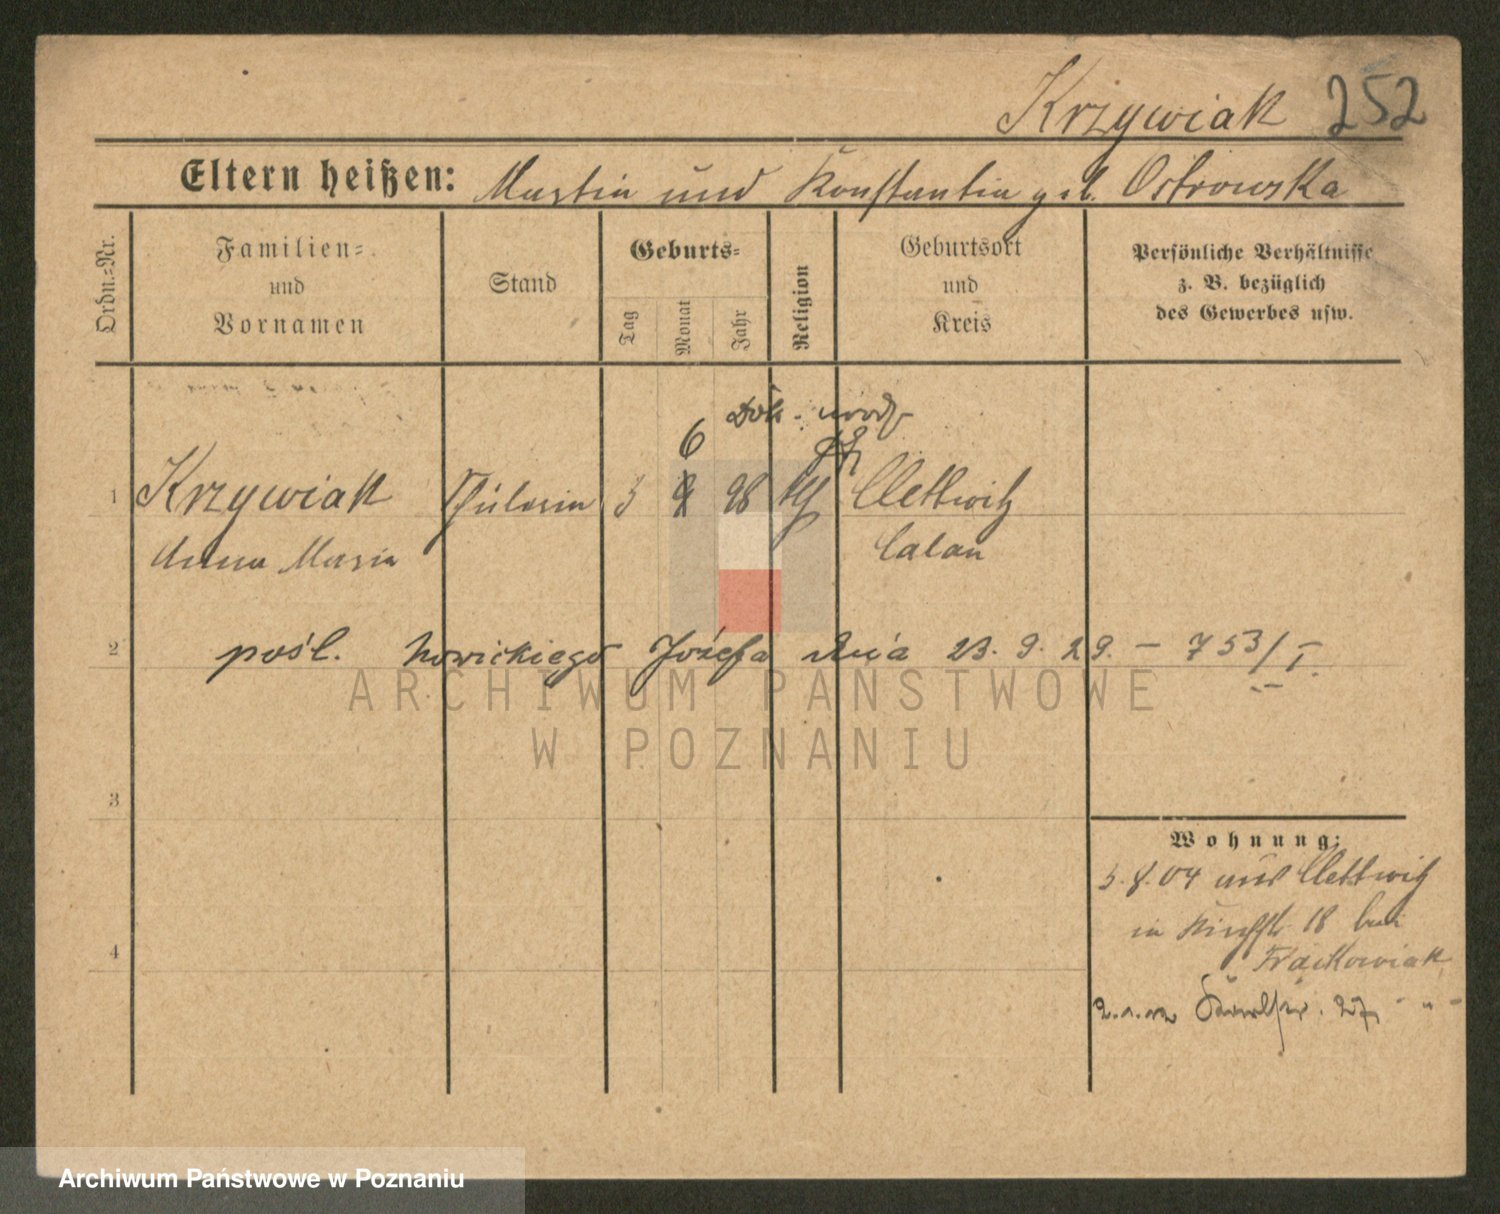 Krzywiak 252
Eltern heißen: Martin und Konstantin geb. Ostrowska
Ordn.-Nr.
Familien-
und
Vornamen
Stand
Geburts-
Tag
Monat
Jahr
Religion
Geburtsort
und
Kreis
Persönliche Verhältnisse
z. B. bezüglich
des Gewerbes usw.
6
1 Krzywiak Schülerin 5 9 98 Clettwitz
Anna Maria Calau
2 pośl. Nowickiego Józefa dnia 23. 9. 29. – 753/I.
ARCHIWUM PAŃSTWOWE
W POZNANIU
3
Wohnung:
5. 8. 04 aus Clettwitz
in 18 bei
4 Frackowiak
27 " "
Archiwum Państwowe w Poznaniu